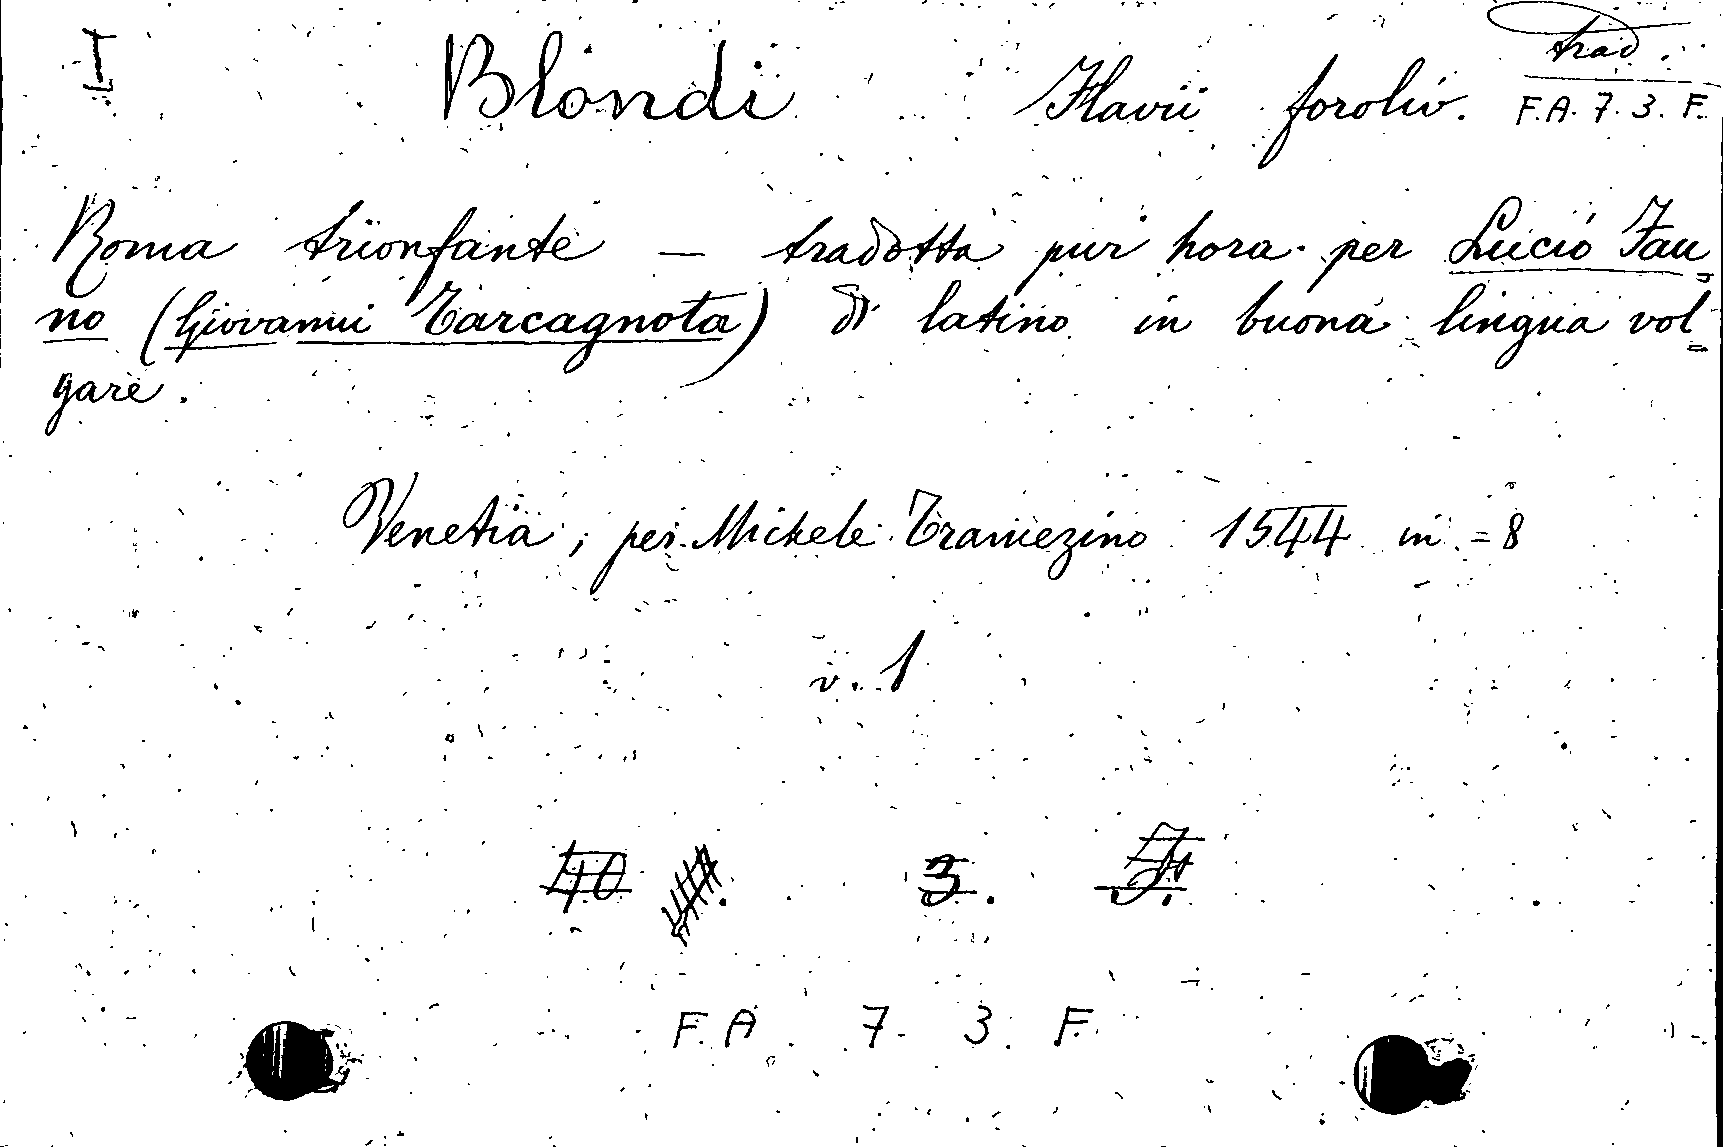 I
trad.
Blondi Flavii foroliv. F.A. 7. 3. F.
Roma trionfante — tradotta pur hora per Lucio Fau=
no (Giovanni Tarcagnota) di latino in buona lingua vol=
gare.
Venetia, per Michele Tramezino 1544 in=8°
v. 1
40 . 3. F.
F.A. 7. 3. F.